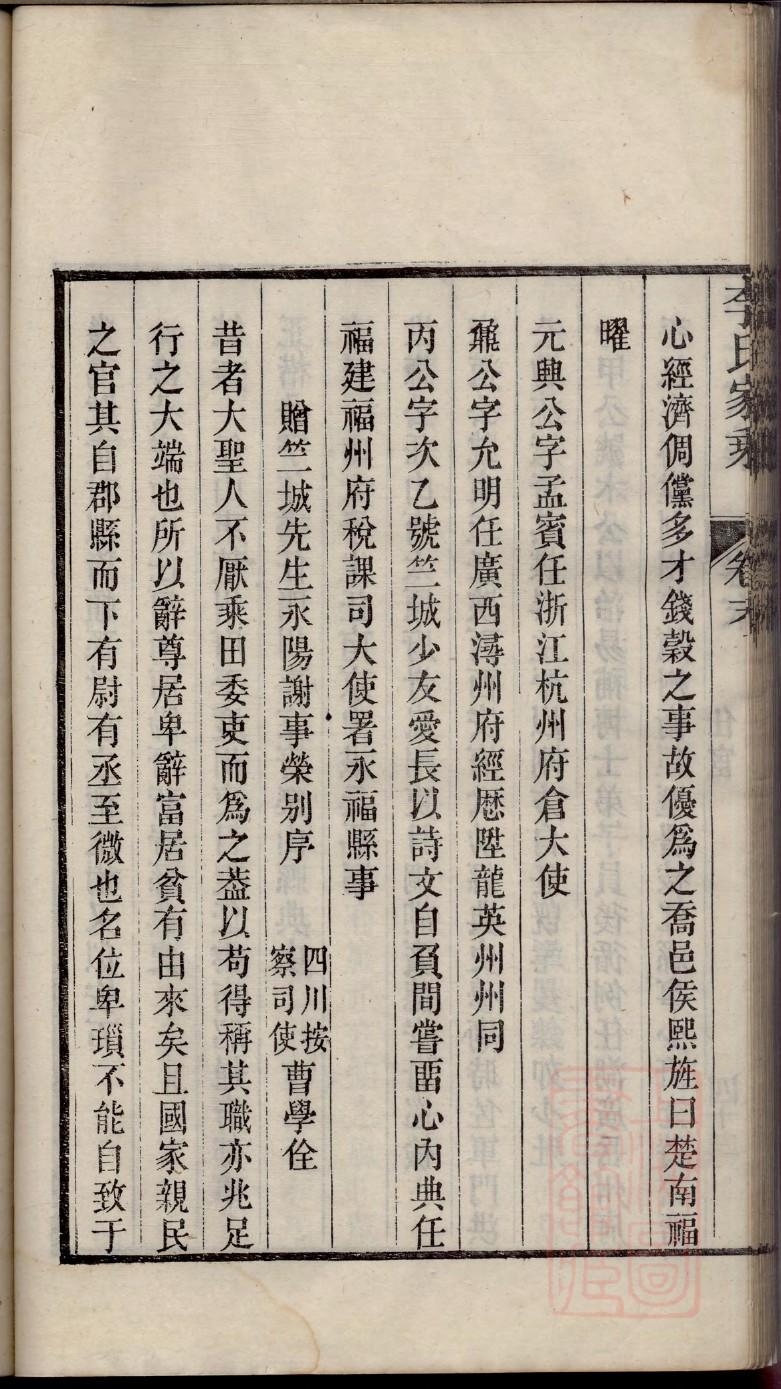 李氏家乘 卷末
心經濟倜儻多才錢穀之事故優爲之喬邑侯熙旌曰楚南福
曜
元興公字孟賓任浙江杭州府倉大使
鼐公字允明任廣西潯州府經厯陞龍英州州同
丙公字次乙號竺城少友愛長以詩文自負間嘗畱心內典任
福建福州府稅課司大使署永福縣事
贈竺城先生永陽謝事榮别序 四川按察司使曹學佺
昔者大聖人不厭乘田委吏而爲之葢以苟得稱其職亦兆足
行之大端也所以辭尊居卑辭富居貧有由來矣且國家親民
之官其自郡縣而下有尉有丞至微也名位卑瑣不能自致于